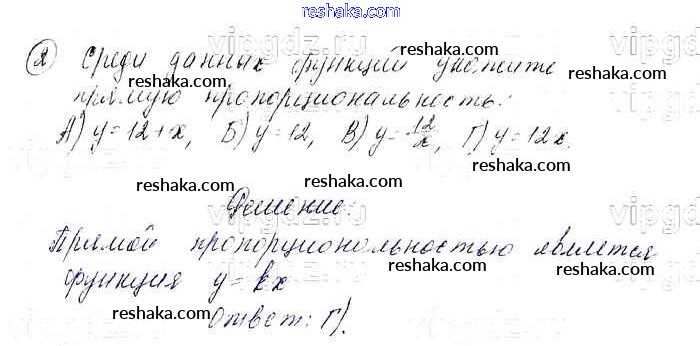 reshaka.com
2) Среди данных функций укажите
прямую пропорциональность:
А) y=12+x, Б) y=12, В) y=12/x, Г) y=12x.
Решение:
Прямой пропорциональностью является
функция y=kx
Ответ: Г).
reshaka.com
reshaka.com
reshaka.com
reshaka.com
reshaka.com
reshaka.com
reshaka.com
reshaka.com
reshaka.com